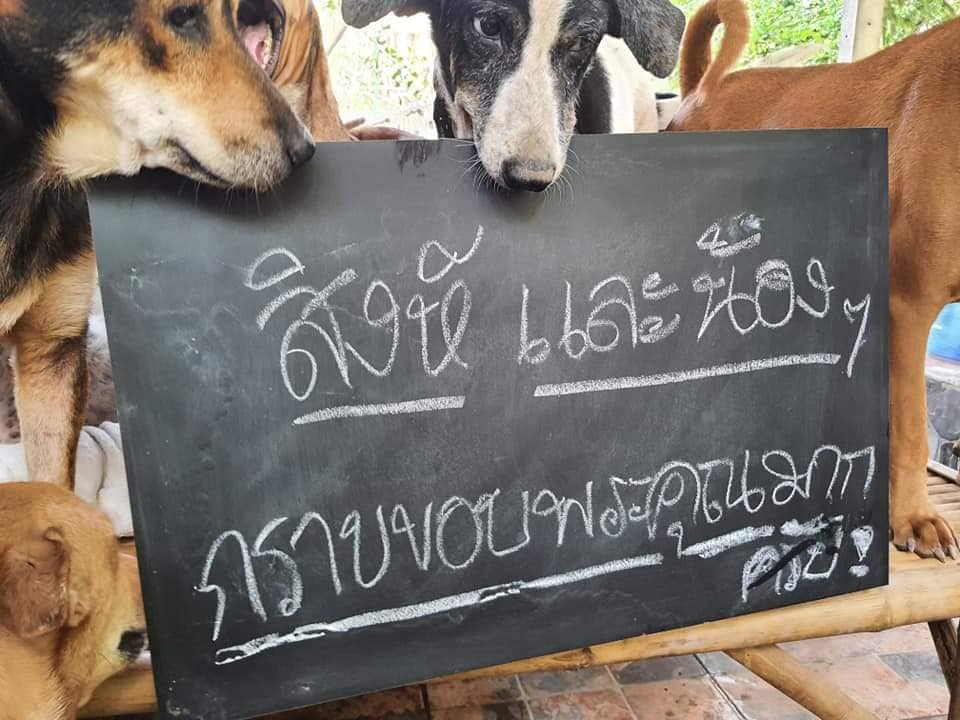 สิงห์ และน้องๆ
กราบขอบพระคุณมาก
ครับ!